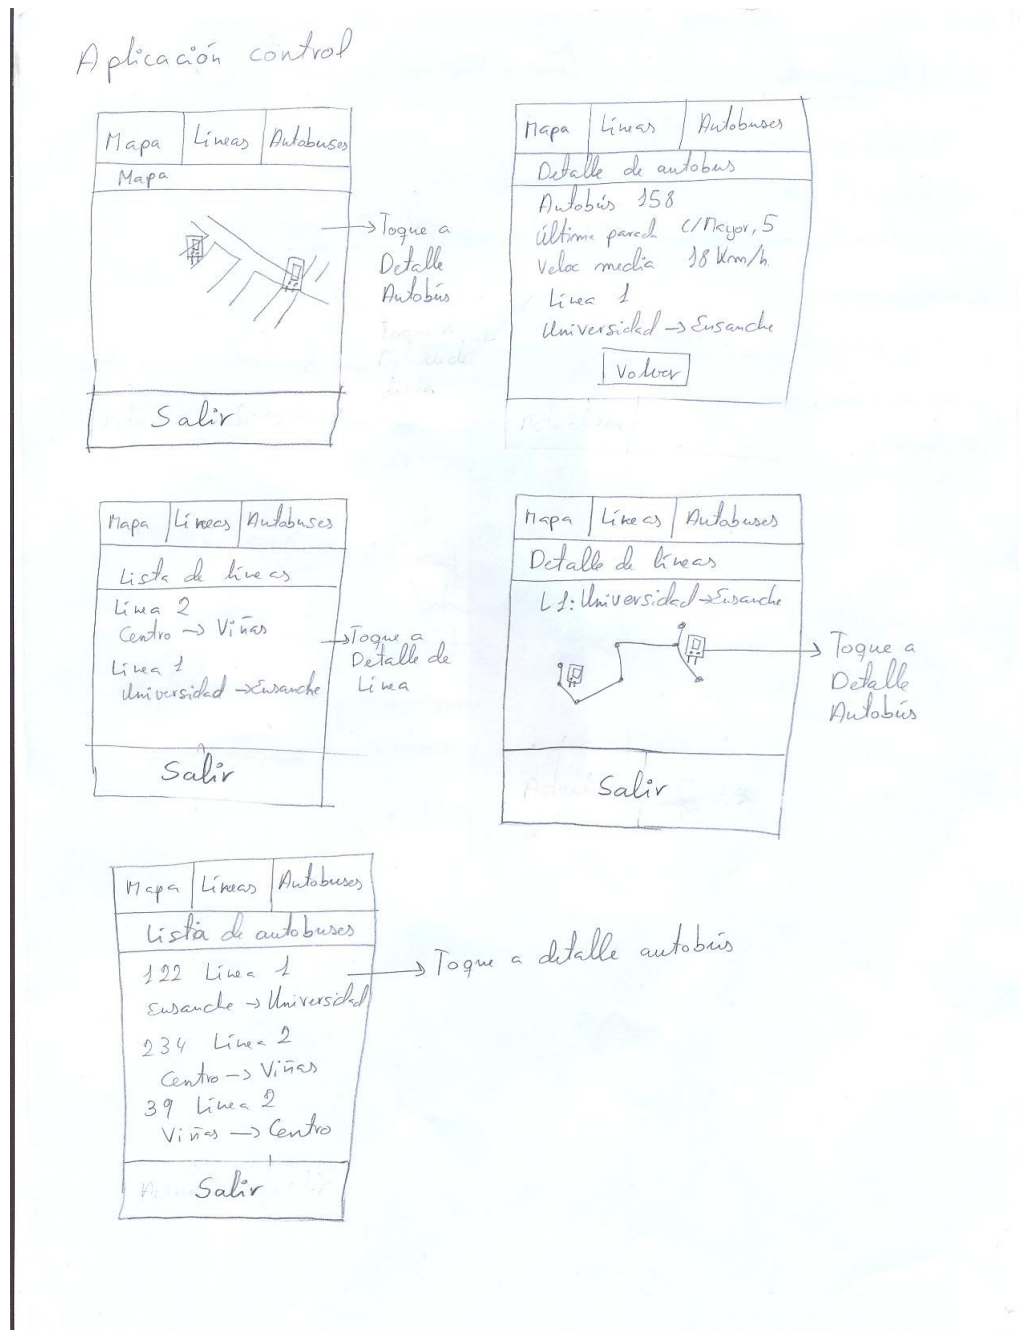 Aplicación control
Mapa Líneas Autobuses
Mapa
→ Toque a
Detalle
Autobús
Salir
Mapa Líneas Autobuses
Detalle de autobus
Autobús 158
última parada c/Mayor, 5
Veloc media 18 Km/h
Línea 1
Universidad → Ensanche
Volver
Mapa Líneas Autobuses
Lista de líneas
Línea 2
Centro → Viñas
Línea 1
Universidad → Ensanche
→ Toque a
Detalle de
Línea
Salir
Mapa Líneas Autobuses
Detalle de líneas
L1: Universidad → Ensanche
→ Toque a
Detalle
Autobús
Salir
Mapa Líneas Autobuses
Lista de autobuses
122 Línea 1
Ensanche → Universidad
234 Línea 2
Centro → Viñas
39 Línea 2
Viñas → Centro
→ Toque a detalle autobús
Salir